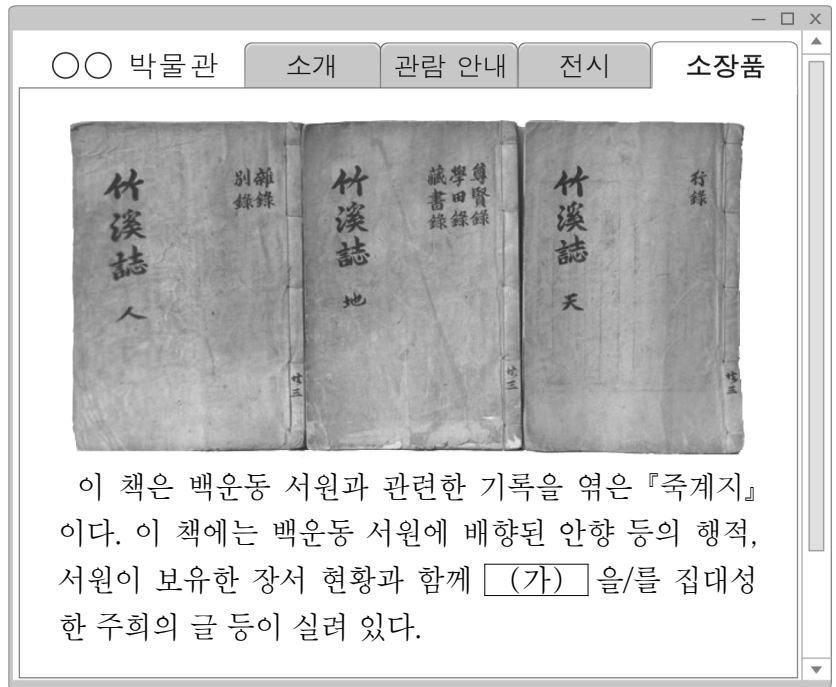 ○○ 박물관 소개 관람 안내 전시 소장품
竹溪誌 人
雜錄
別錄
竹溪誌 地
尊賢錄
學田錄
藏書錄
竹溪誌 天
行錄
이 책은 백운동 서원과 관련한 기록을 엮은 『죽계지』
이다. 이 책에는 백운동 서원에 배향된 안향 등의 행적,
서원이 보유한 장서 현황과 함께 (가) 을/를 집대성
한 주희의 글 등이 실려 있다.